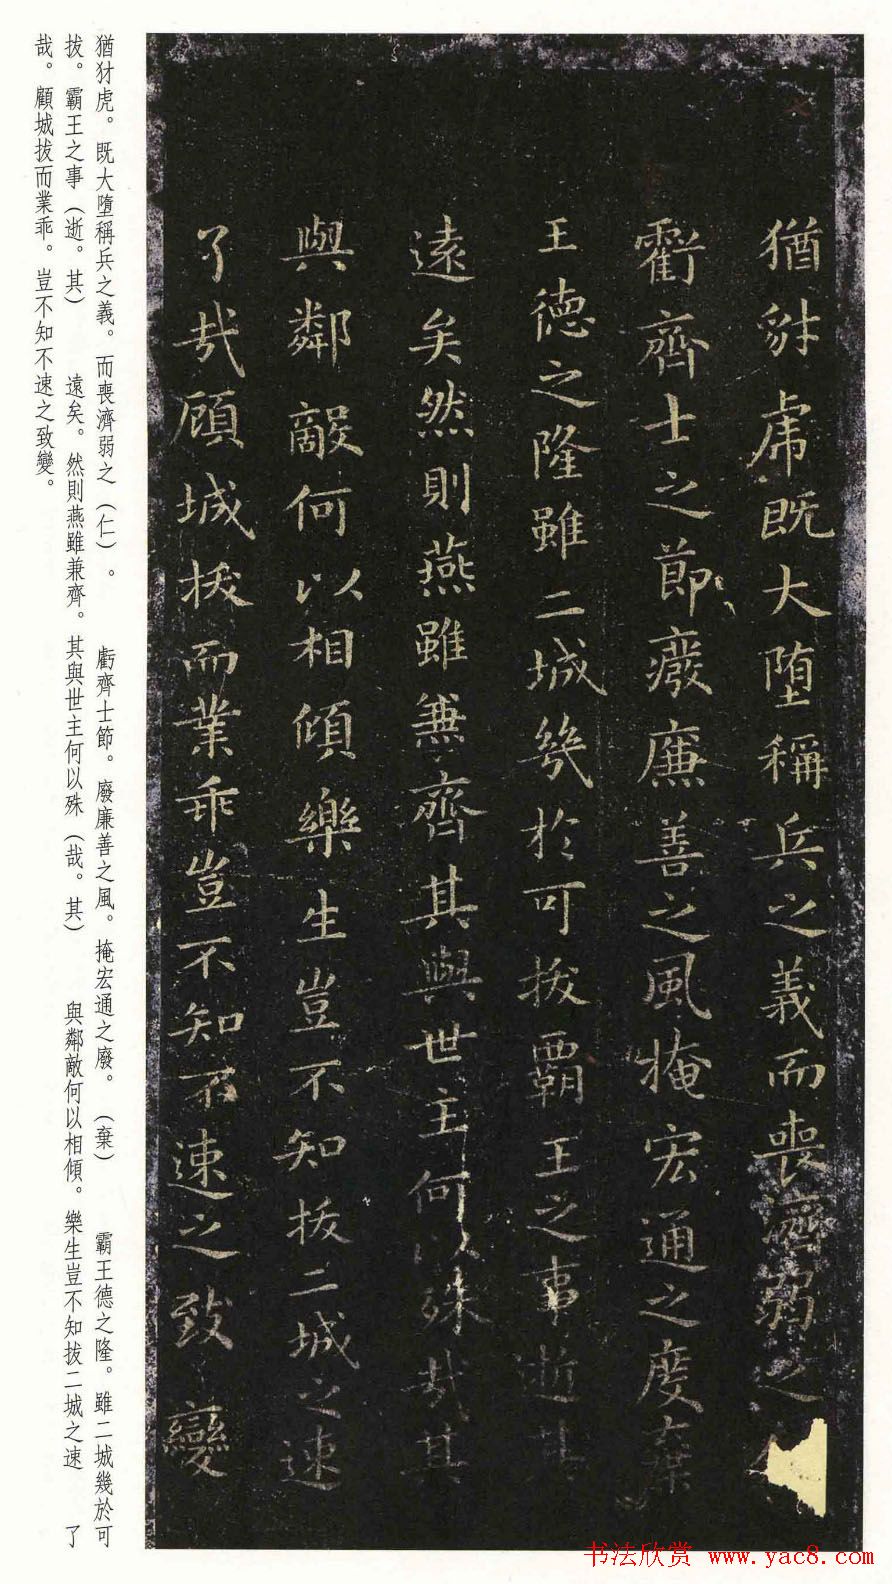 猶豺虎既大堕稱兵之義而喪濟弱之
虧齊士之節癈廉善之風掩宏通之度棄
王德之隆雖二城幾於可拔霸王之事逝其
遠矣然則燕雖兼齊其與世主何以殊哉其
與鄰敵何以相傾樂生豈不知拔二城之速
了哉顧城拔而業乖豈不知不速之致變
猶犲虎。既大墮稱兵之義。而喪濟弱之（仁）。 虧齊士節。廢廉善之風。掩宏通之廢。（棄） 霸王德之隆。雖二城幾於可
拔。霸王之事（逝。其） 遠矣。然則燕雖兼齊。其與世主何以殊（哉。其） 與鄰敵何以相傾。樂生豈不知拔二城之速 了
哉。顧城拔而業乖。豈不知不速之致變。
书法欣赏 www.yac8.com